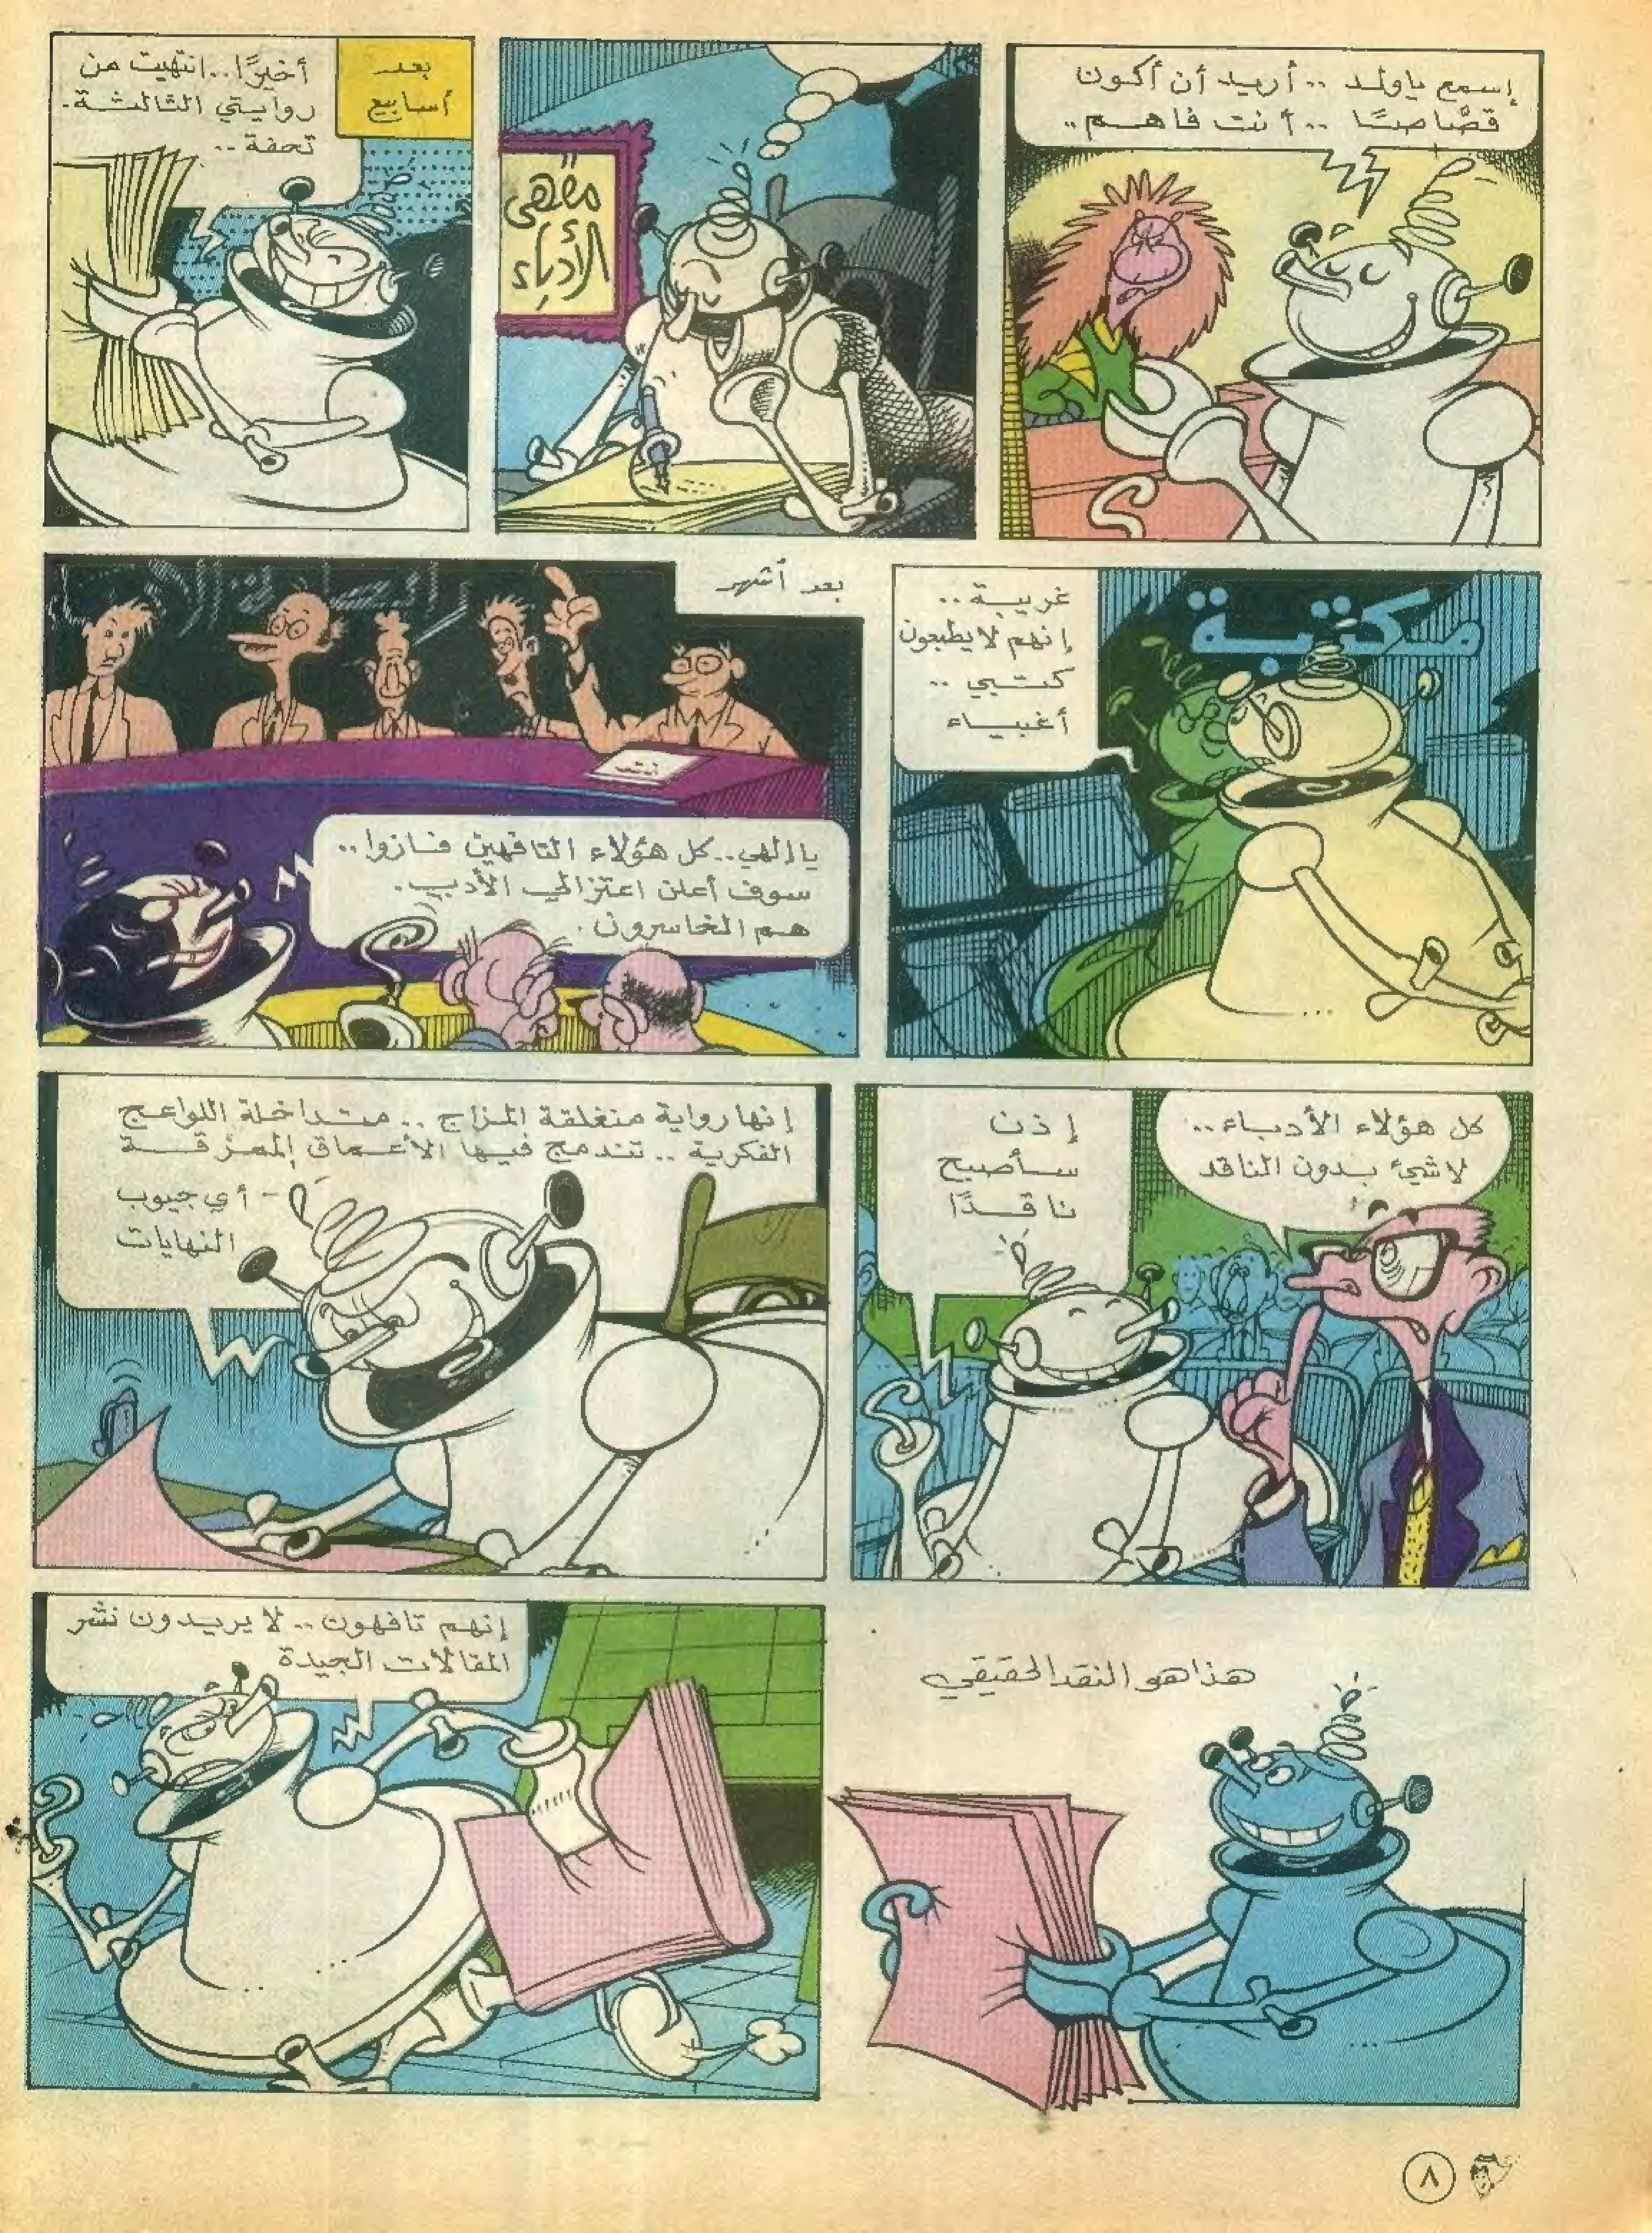 إسمع ياولد .. أريد أن أكون
قصّاصًا .. أنت فاهم ..
مقهى
الأدباء
بعد
أسابيع
أخيرًا.. انتهيت من
روايتي الثالثة.
تحفة ..
مكتبة
غريبة ..
إنهم لا يطبعون
كتبي ..
أغبياء
بعد أشهر
يا إلهي.. كل هؤلاء التافهين فازوا ..
سوف أعلن اعتزالي الأدب.
هم الخاسرون.
كل هؤلاء الأدباء ..
لاشيء بدون الناقد
إذن
سأصبح
ناقدًا
إنها رواية منغلقة المزاج .. متداخلة اللواعج
الفكرية .. تندمج فيها الأعماق الممزقة
- أي جيوب
النهايات
هذا هو النقد الحقيقي
إنهم تافهون .. لا يريدون نشر
المقالات الجيدة
٨